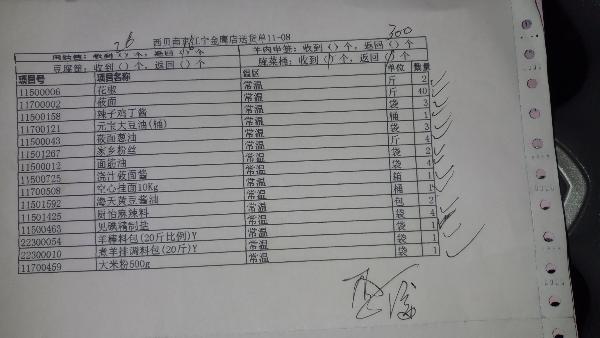 西贝南京江宁金鹰店送货单11-08
26
300
周转筐：收到（）个，返回（）个 羊肉串筐：收到（）个，返回（）个
豆腐筐：收到（）个，返回（）个 腌菜桶：收到（）个，返回（）个
项目号 项目名称 温区 单位 数量
11500006 花椒 常温 斤 2
11700002 莜面 常温 斤 40
11500158 辣子鸡丁酱 常温 袋 3
11700121 元宝大豆油(桶) 常温 桶 1
11500043 莜面葱油 常温 袋 3
11501267 家乡粉丝 常温 斤 4
11500012 面筋油 常温 袋 2
11500725 浇汁莜面酱 常温 袋 4
11700508 空心挂面10Kg 常温 箱 1
11501592 海天黄豆酱油 常温 桶 1
11501425 厨怡麻辣料 常温 包 2
11500463 见礁精制盐 常温 袋 4
22300054 羊棒料包(20斤比例)Y 常温 袋 1
22300010 煮羊排调料包(20斤)Y 常温 袋 1
11700459 大米粉500g 常温 袋 1